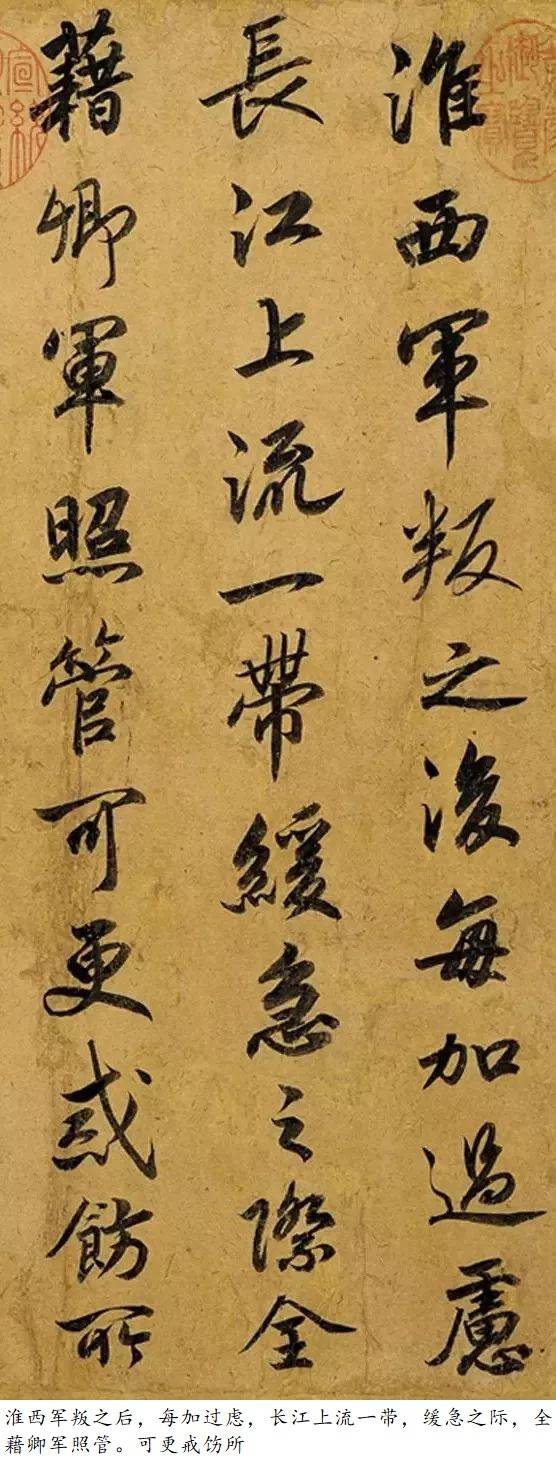 淮西軍叛之後每加過慮
長江上流一帶緩急之際全
藉卿軍照管可更戒飭所
淮西军叛之后，每加过虑，长江上流一带，缓急之际，全
藉卿军照管。可更戒饬所